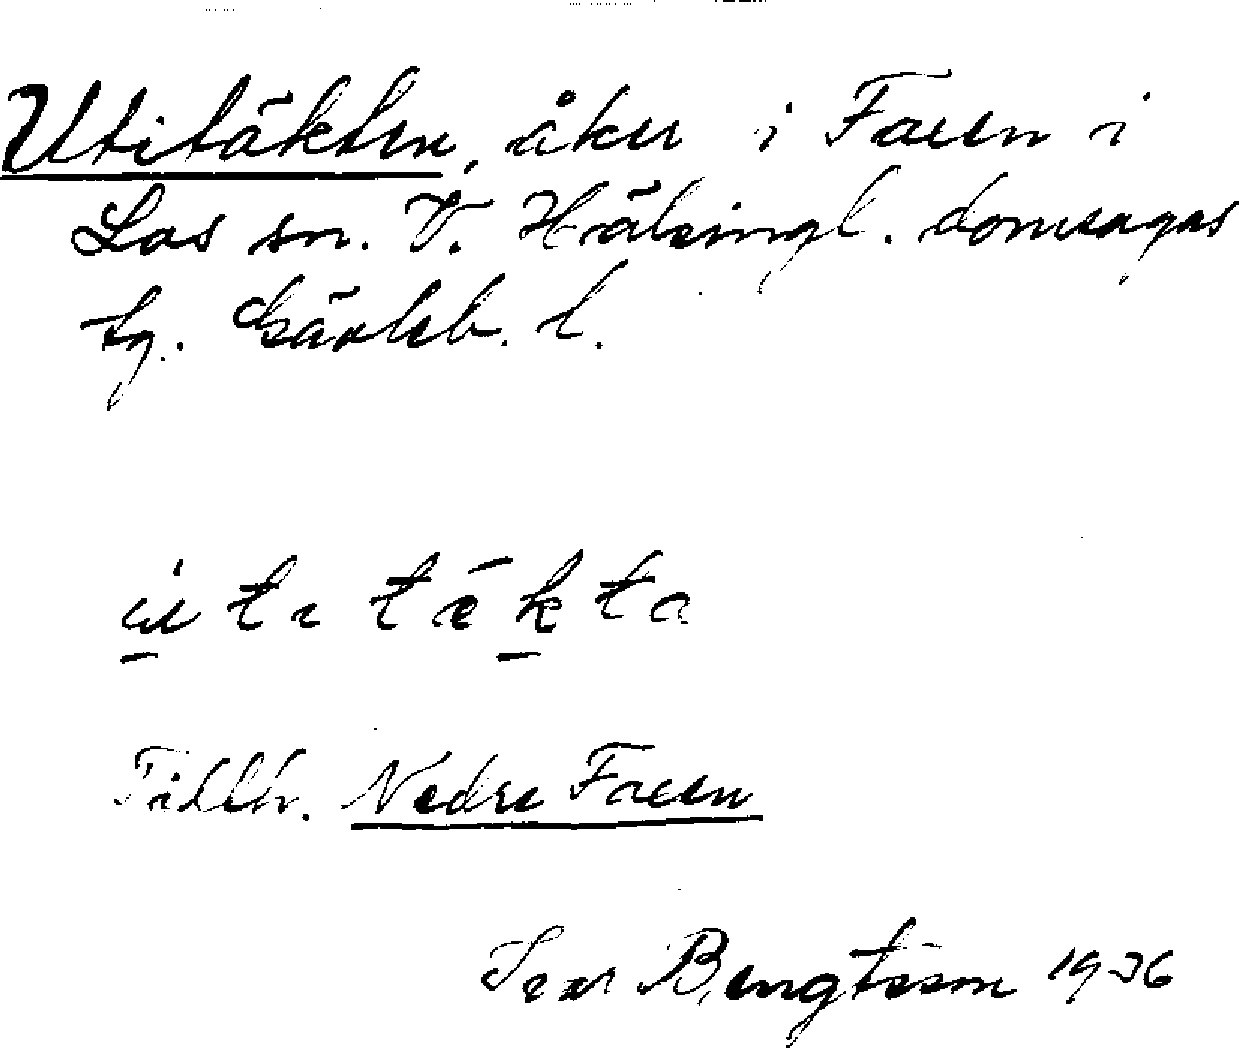 Utitäkten, åker i Faeen i
Los sn. V. Hälsingl. domsagas
tg. Gävleb. l.
Tillh. Nedre Faeen
Ivar Bengtsson 1936